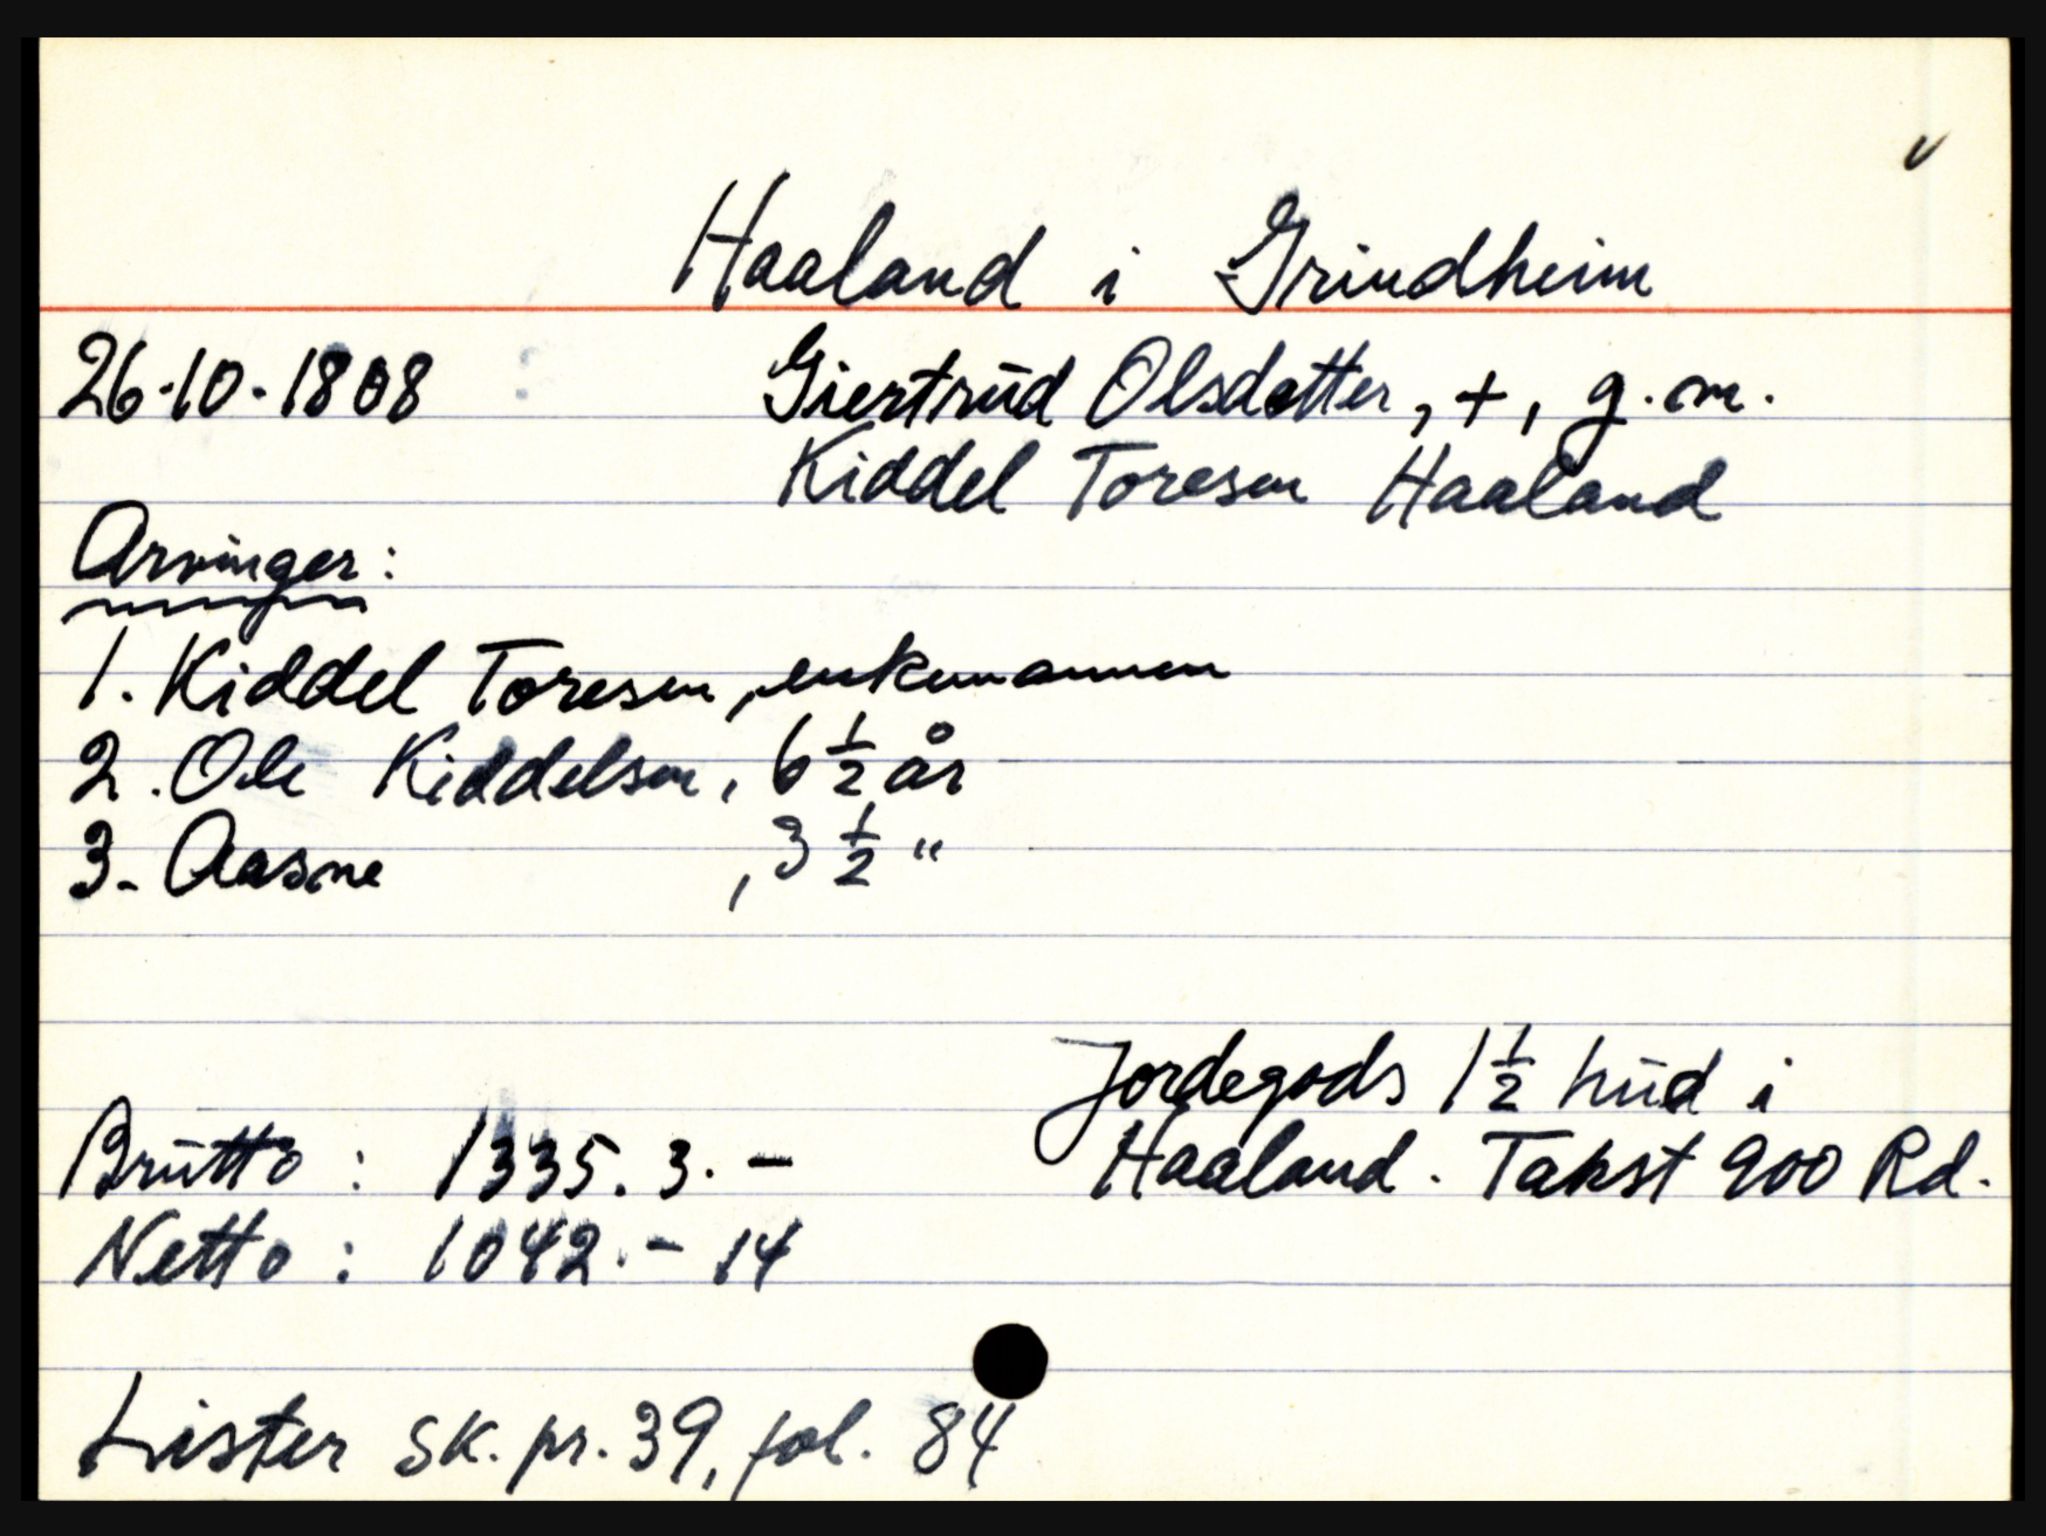 v
Haaland i Grindheim
26.10.1808 Giertrud Olsdatter, +, g.m.
Kiddel Toresen Haaland
Arvinger:
1. Kiddel Toresen, enkemannen
2. Ole Kiddelsen, 6 1/2 år
3. Aasne , 3 1/2 "
Jordegods 1 1/2 hud i
Brutto : 1335. 3. - Haaland. Takst 900 Rd.
Netto : 1042. - 14
Lister sk. pr. 39, fol. 84